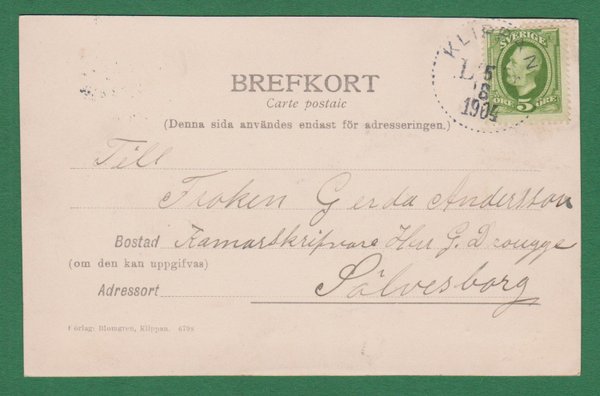 BREFKORT
Carte postale
(Denna sida användes endast för adresseringen.)
KLIPPAN
5
6
1904
SVERIGE
ÖRE 5 ÖRE
Till
Froken Gerda Andersson
Bostad Kamarskrifvare Herr G. Drougge
(om den kan uppgifvas)
Adressort Sölvesborg
Förlag: Blomgren, Klippan. 6798